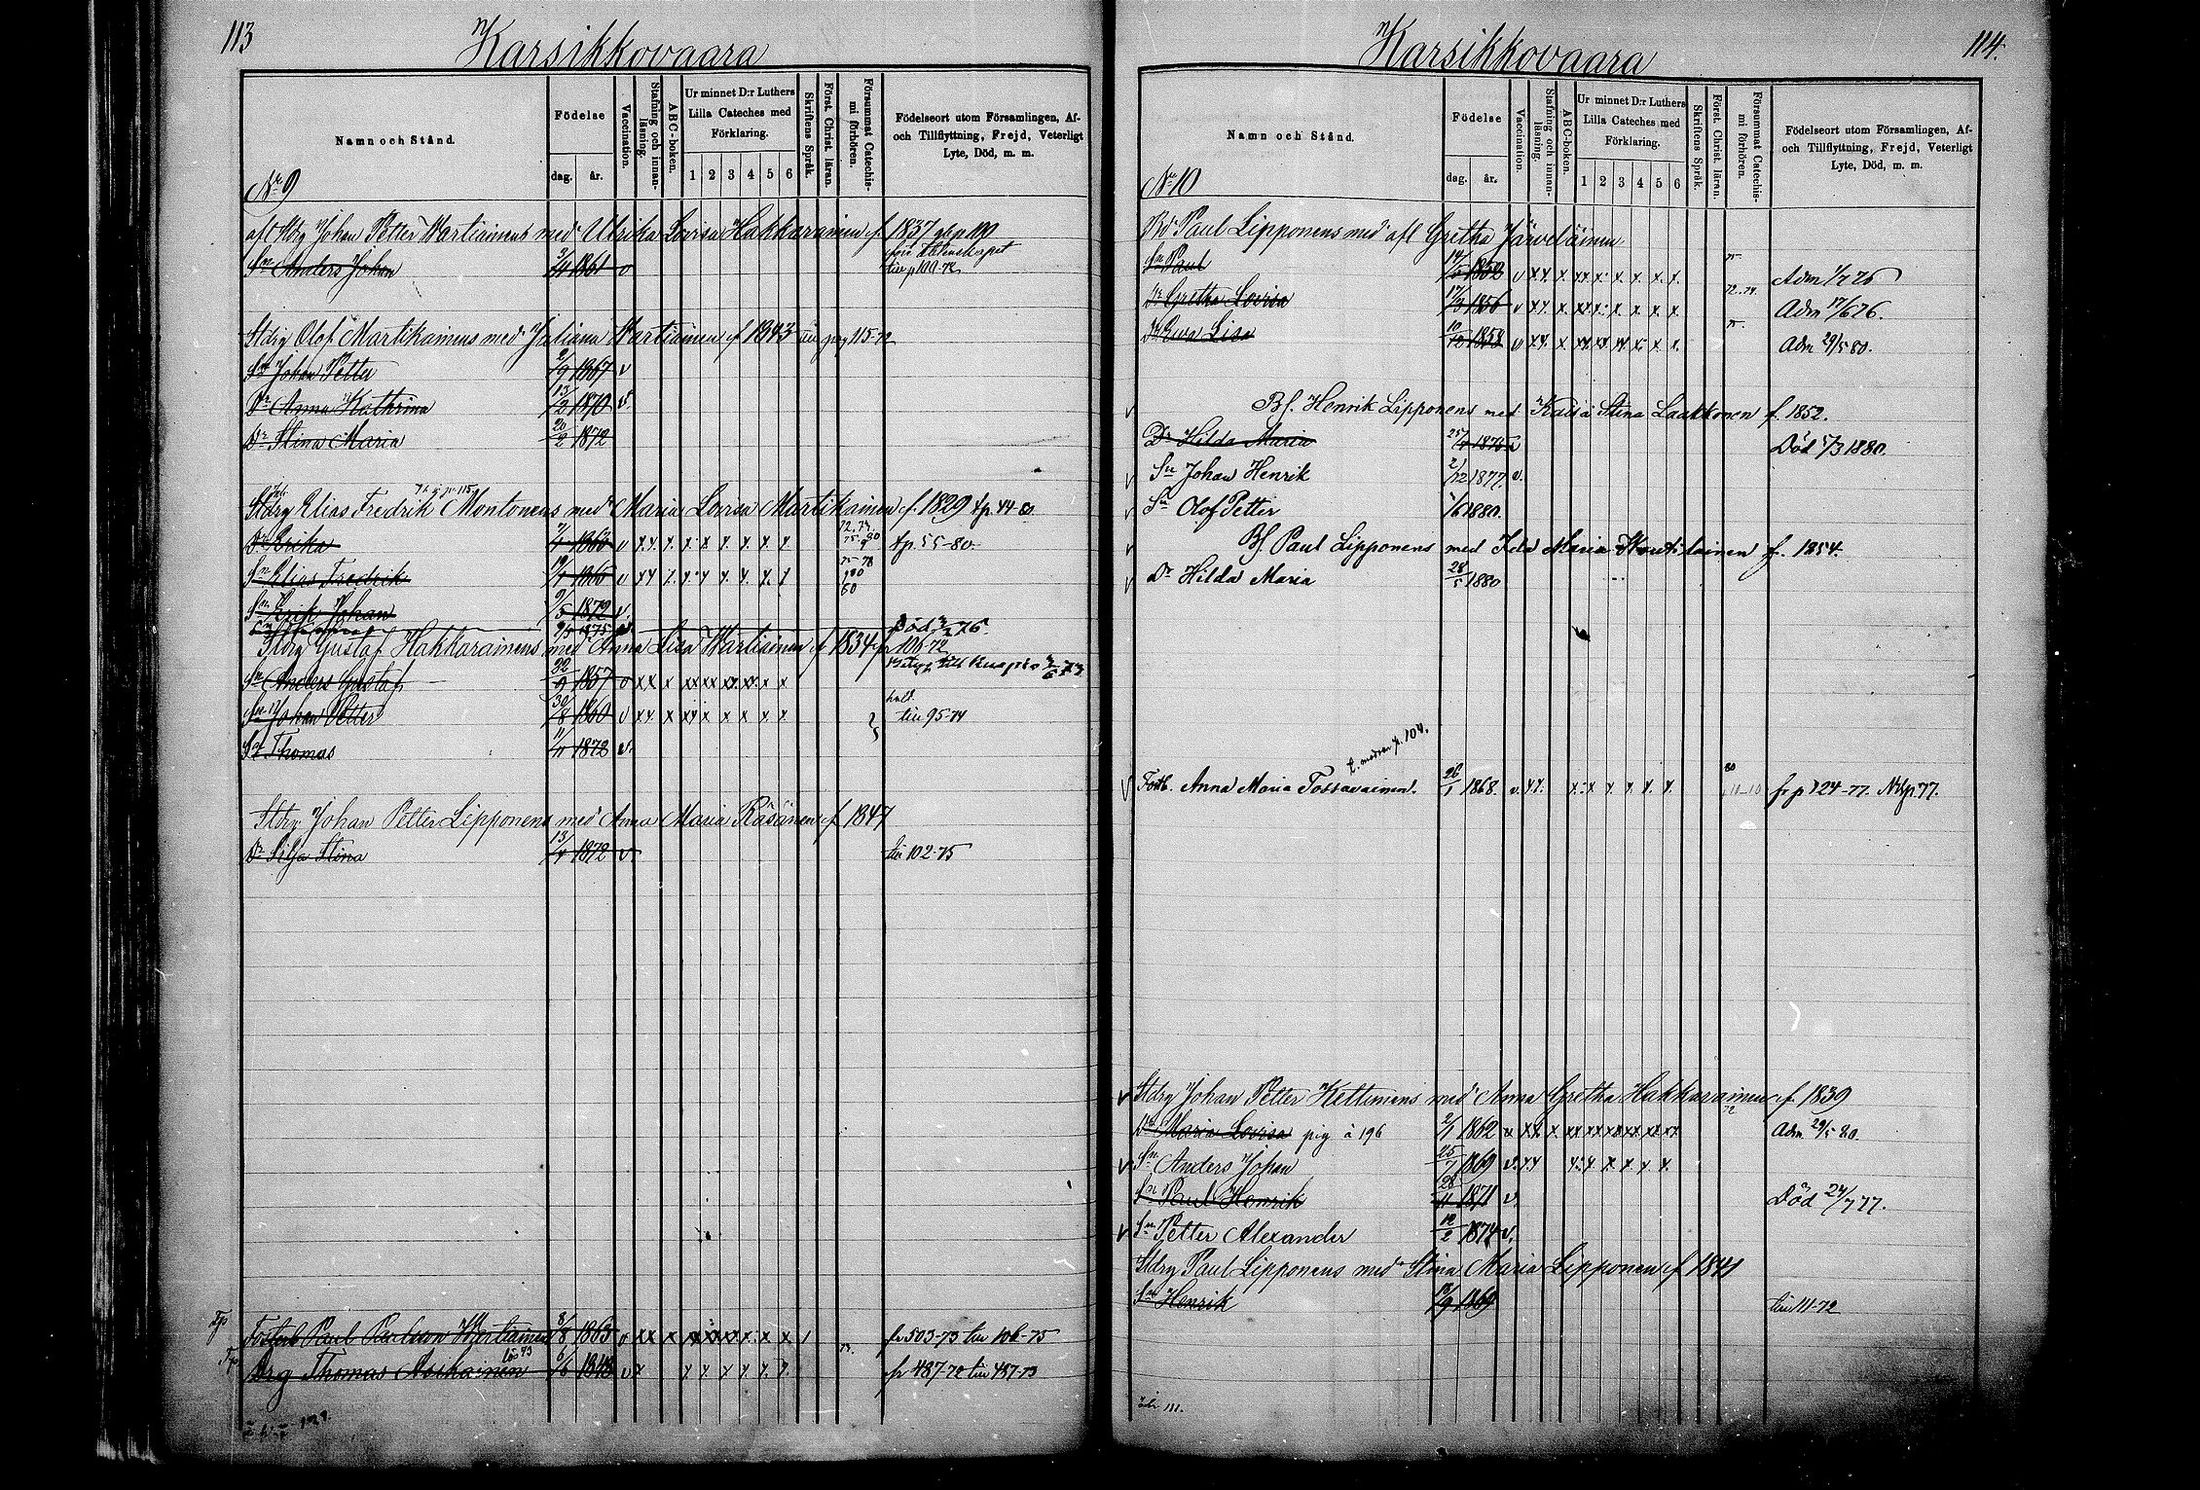 113
Karsikkovaara
Namn och Stånd.
Födelse
dag.
år.
Vaccination.
Stafning och innan-läsning.
ABC-boken.
Ur minnet D:r Luthers
Lilla Cateches med
Förklaring.
1 2 3 4 5 6
Skriftens Språk.
Först. Christ. läran.
Försummat Catechis-
mi förhören.
Födelseort utom Församlingen, Af-
och Tillflyttning, Frejd, Veterligt
Lyte, Död, m. m.
No 9
afl Stdrg Johan Petter Martiainens med Ulrika Lovisa Hakkarainen f. 1837
Sn Anders Johan 1861 v
Stdrg Olof Martikainens med Juliana Martiainen f 1843 115-72
Sn Johan Petter 2/9 1867 v
Dr Anna Kathrina 13/2 1870 v.
Dr Stina Maria 20/2 1872
Stdrg Elias Fredrik Montonens med Maria Lovisa Martikainen f. 1829 tp. 44-80
Dr Erika v x.x. x. x x x. x. x x tp. 55-80.
Sn Elias Fredrik v x x x. x. x x. x. x. x 75-78
Sn Erik Johan 9/5 1872 v.
9/5 1875 Död 76.
Stdrg Gustaf Hakkarainens med Anna Lisa Martiainen f 1834 106-72
Sn Anders Gustaf 22/9 1857 v xx x xx xx xx xx x x
Sn Johan Petter 30/8 1860 v xx x xx x x x x x tin 95-74
Sn Thomas 11/11 1872 v.
Stdrg Johan Petter Lipponens med Anna Maria Räsänen f. 1847
Dr Silja Stina 13/4 1872 v tin 102-75
Fosterb Paul Martiainen 3/8 1863 v xx x x x x / fr 503-73 tin 106-75
Drg Thomas 6/6 1848 v x x x. x x. x. x. fr 487-72 tin 487-73
114.
Karsikkovaara
Namn och Stånd.
Födelse
dag.
år.
Vaccination.
Stafning och innan-läsning.
ABC-boken.
Ur minnet D:r Luthers
Lilla Cateches med
Förklaring.
1 2 3 4 5 6
Skriftens Språk.
Först. Christ. läran.
Försummat Catechis-
mi förhören.
Födelseort utom Församlingen, Af-
och Tillflyttning, Frejd, Veterligt
Lyte, Död, m. m.
No 10
Bd Paul Lipponens med afl Gretha Järveläinen
Sn Paul 1852 v x x. x x x x. x. x. x. Adm 76
Dr Gretha Lovisa 17/3 1856 v x x. x xx x x x x x 72.74. Adm 17/6 76.
Dr Ewa Lisa v x x. x xx xx xx x x x. Adm 29/5 80.
v Bf. Henrik Lipponens med Kaisa Stina Laakkonen f. 1852.
Dr Hilda Maria 1875 v Död 5/3 1880.
v Sn Johan Henrik 2/12 1877. v.
v Sn Olof Petter 1880.
v Bf. Paul Lipponens med Ida Maria f. 1854.
v Dr Hilda Maria 28/5 1880
p. 104.
v Fostb. Anna Maria Tossavainen. 26/1 1868. v. x x. x x x x. x. x 80 fr p 124-77. Nblp 77.
v Stdrg Johan Petter Kettunens med Anna Gretha Hakkarainen f. 1839
Dr Maria Lovisa pig å 196 2/1 1862 v xx x xx xx xx xx xx xx Adm 29/5 80.
v Sn Anders Johan 25/7 1869 v. x x x. x x. x x x.
Sn Paul Henrik 28/11 1871 v. Död 24/7 77.
v Sn Petter Alexander 12/2 1874 v.
Stdrg Paul Lipponens med Stina Maria Lipponen f 1841
Sn Henrik 1869 tin 111-72
111.